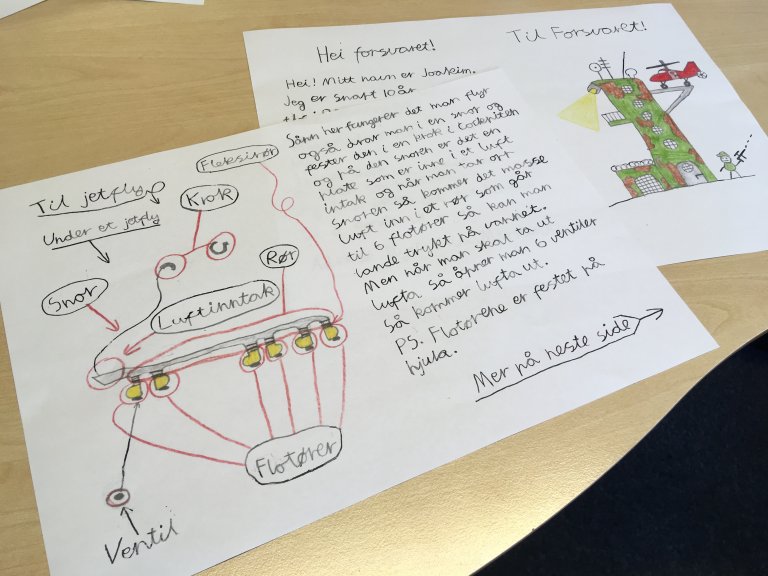 Hei forsvaret!
Hei! Mitt navn er Joakim.
Jeg er snart 10 år
Til Forsvaret!
Til jetfly
Under et jetfly
Snor
Krok
Fleksirør
Rør
Luftinntak
Flotører
Ventil
Sånn her fungerer det man flyr
også drar man i en snor og
fester den i en krok i Cockpitten
og på den snoren er det en
plate som er inre i et luft
intak og når man tar opp
snoren så kommer det masse
luft inn i et rør som går
til 6 flotører så kan man
lande trykt på vannet.
Men når man skal ta ut
lufta så åpner man 6 ventiler
så kommer lufta ut.
PS. Flotørene er festet på
hjula.
Mer på neste side